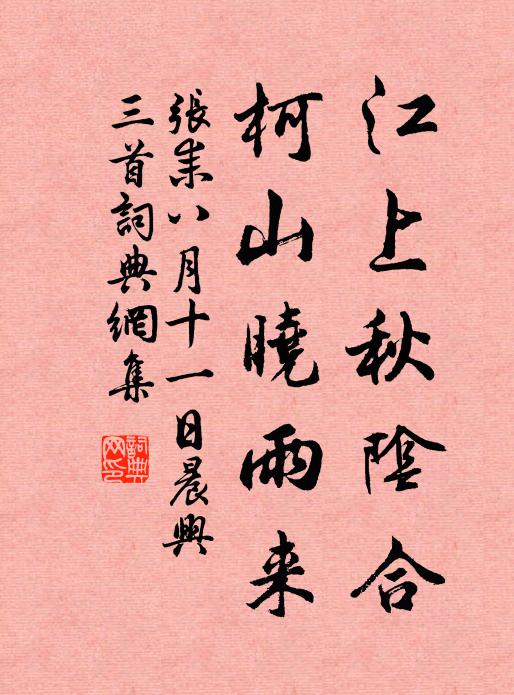 江上秋陰合
柯山曉雨来
張耒八月十一日晨興
三首詞典網集
詞典
网印